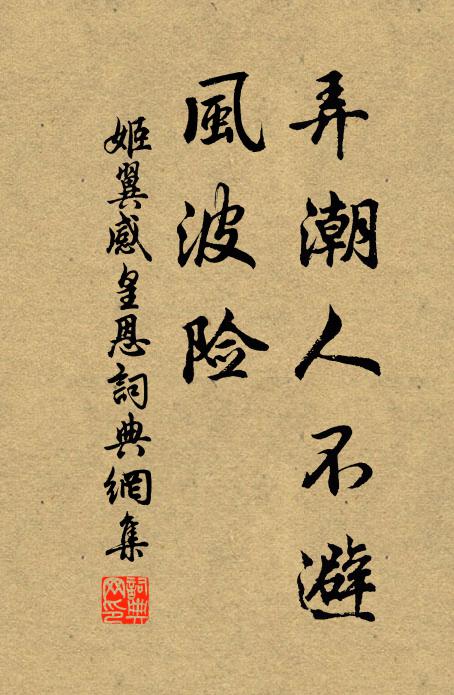 弄潮人不避
風波险
姬翼感皇恩詞典網集
詞典网印